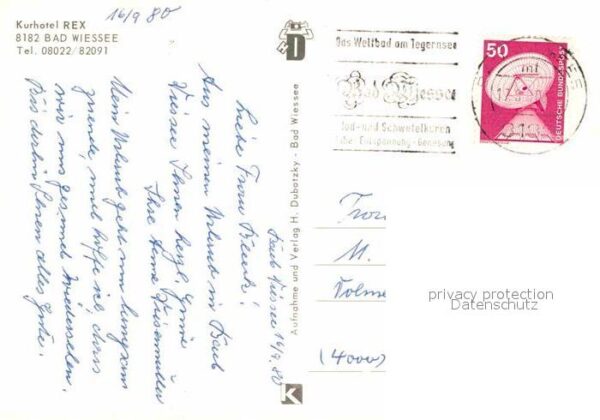 16/9 80
Kurhotel REX
8182 BAD WIESSEE
Tel. 08022/82091
Bad Wiessee 16/9. 80
Liebe Frau
Aus meinem Urlaub in Bad
Wiessee Ihnen herzl. Grüße
Ihre Anna
Mein Urlaub geht nun langsam
zuende, und hoffe ich, dass
wir uns gesund wiedersehen.
Bis dahin Ihnen alles Gute.
Aufnahme und Verlag H. Dubotzky - Bad Wiessee
D
K
Das Weltbad am Tegernsee
Bad Wiessee
Jod- und Schwefelkuren
Entspannung - Genesung
50
DEUTSCHE BUNDESPOST
Frau
M.
(4000)
privacy protection
Datenschutz